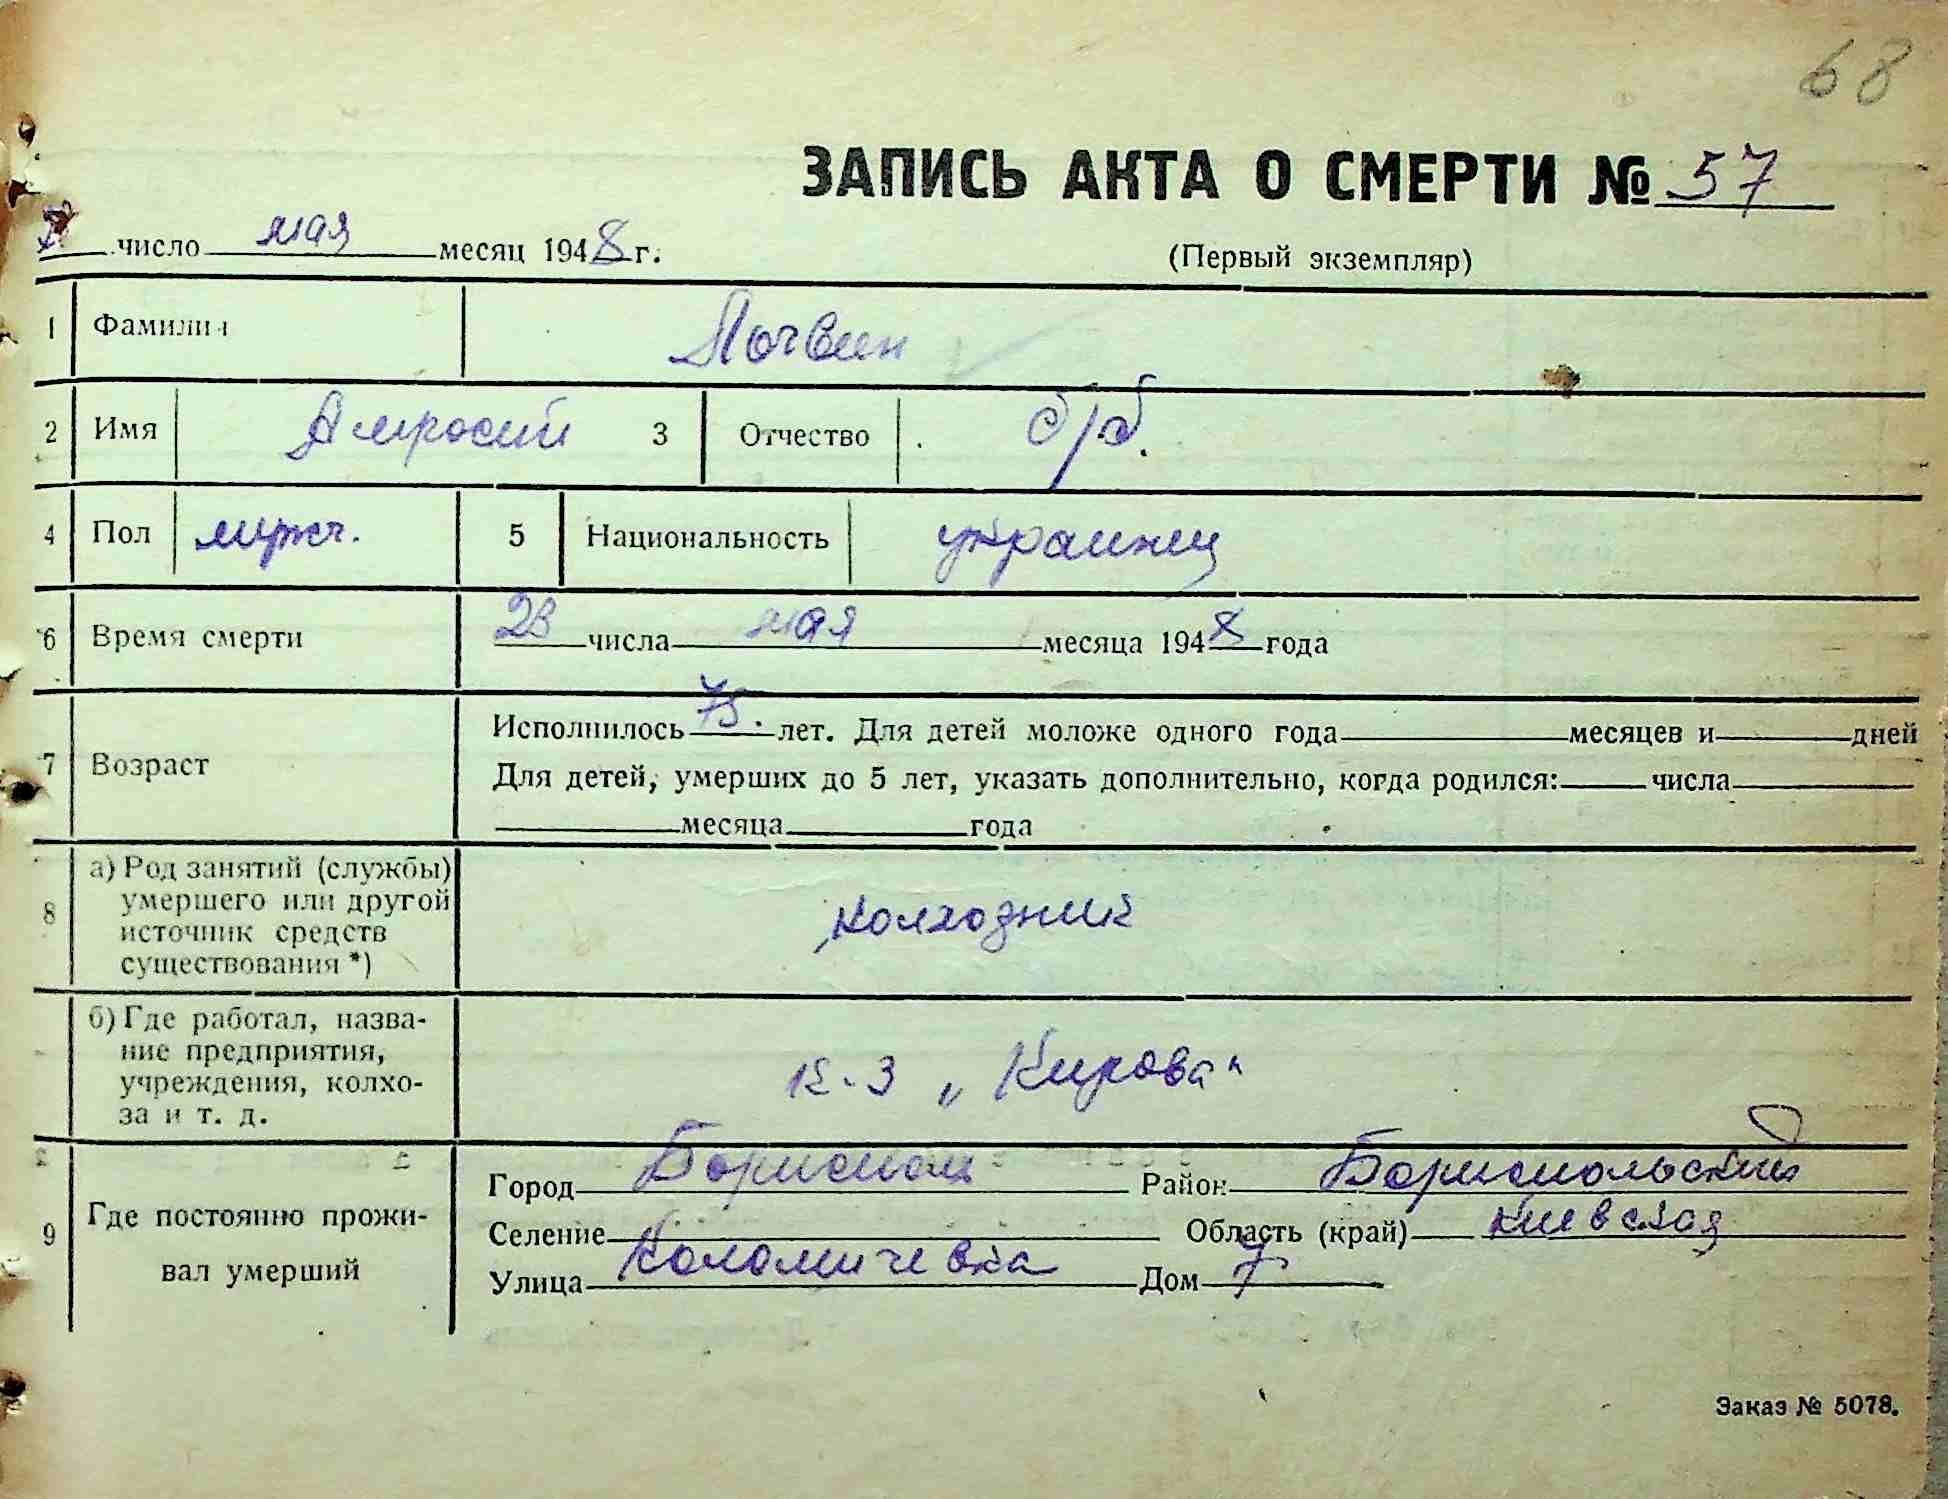 68
ЗАПИСЬ АКТА О СМЕРТИ № 57
число мая месяц 1948 г.
(Первый экземпляр)
1 Фамилия Логвин
2 Имя Амросий 3 Отчество б/об.
4 Пол мужч. 5 Национальность украинец
6 Время смерти 23 числа мая месяца 1948 года
7 Возраст
Исполнилось 75. лет. Для детей моложе одного года месяцев и дней
Для детей, умерших до 5 лет, указать дополнительно, когда родился: числа
месяца года
8 а) Род занятий (службы)
умершего или другой
источник средств
существования *)
колхозник
б) Где работал, назва-
ние предприятия,
учреждения, колхо-
за и т. д.
к-з „Кирова"
9 Где постоянно прожи-
вал умерший
Город Бориспол Район Бориспольский
Селение Область (край) Киевская
Улица Коломичевка Дом 7
Заказ № 5078.